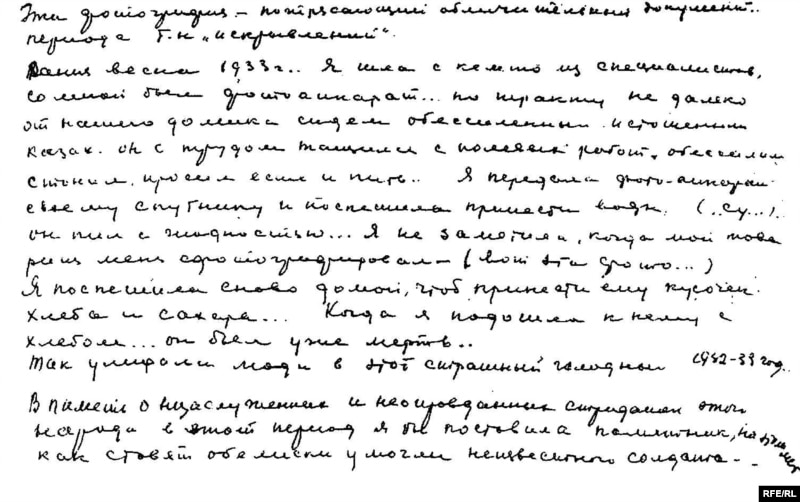 Эта фотография – потрясающий обличительный документ..
периода т.н „искривлений".
Ранняя весна 1933 г.. Я шла с кем то из специалистов,
со мной был фотоаппарат... по тракту не далеко
от нашего домика сидел обессиленный истощенный
казах. он с трудом тащился с полевых работ, обессилил
стонал, просил есть и пить.. Я передала фото-аппарат
своему спутнику и поспешила принести воды. (..су...).
он пил с жадностью... Я не заметила, когда мой това
рищ меня сфотографировал – (вот эта фото...)
Я поспешила снова домой, чтоб принести ему кусочек
хлеба и сахара... Когда я подошла к нему с
хлебом... он был уже мертв..
так умирали люди в этот страшный голодный 1932-33 год..
В память о незаслуженных и неоправданных страданиях этого
народа в этот период я бы поставила памятник,
как ставят обелиски у могил неизвестного солдата..
RFE/RL